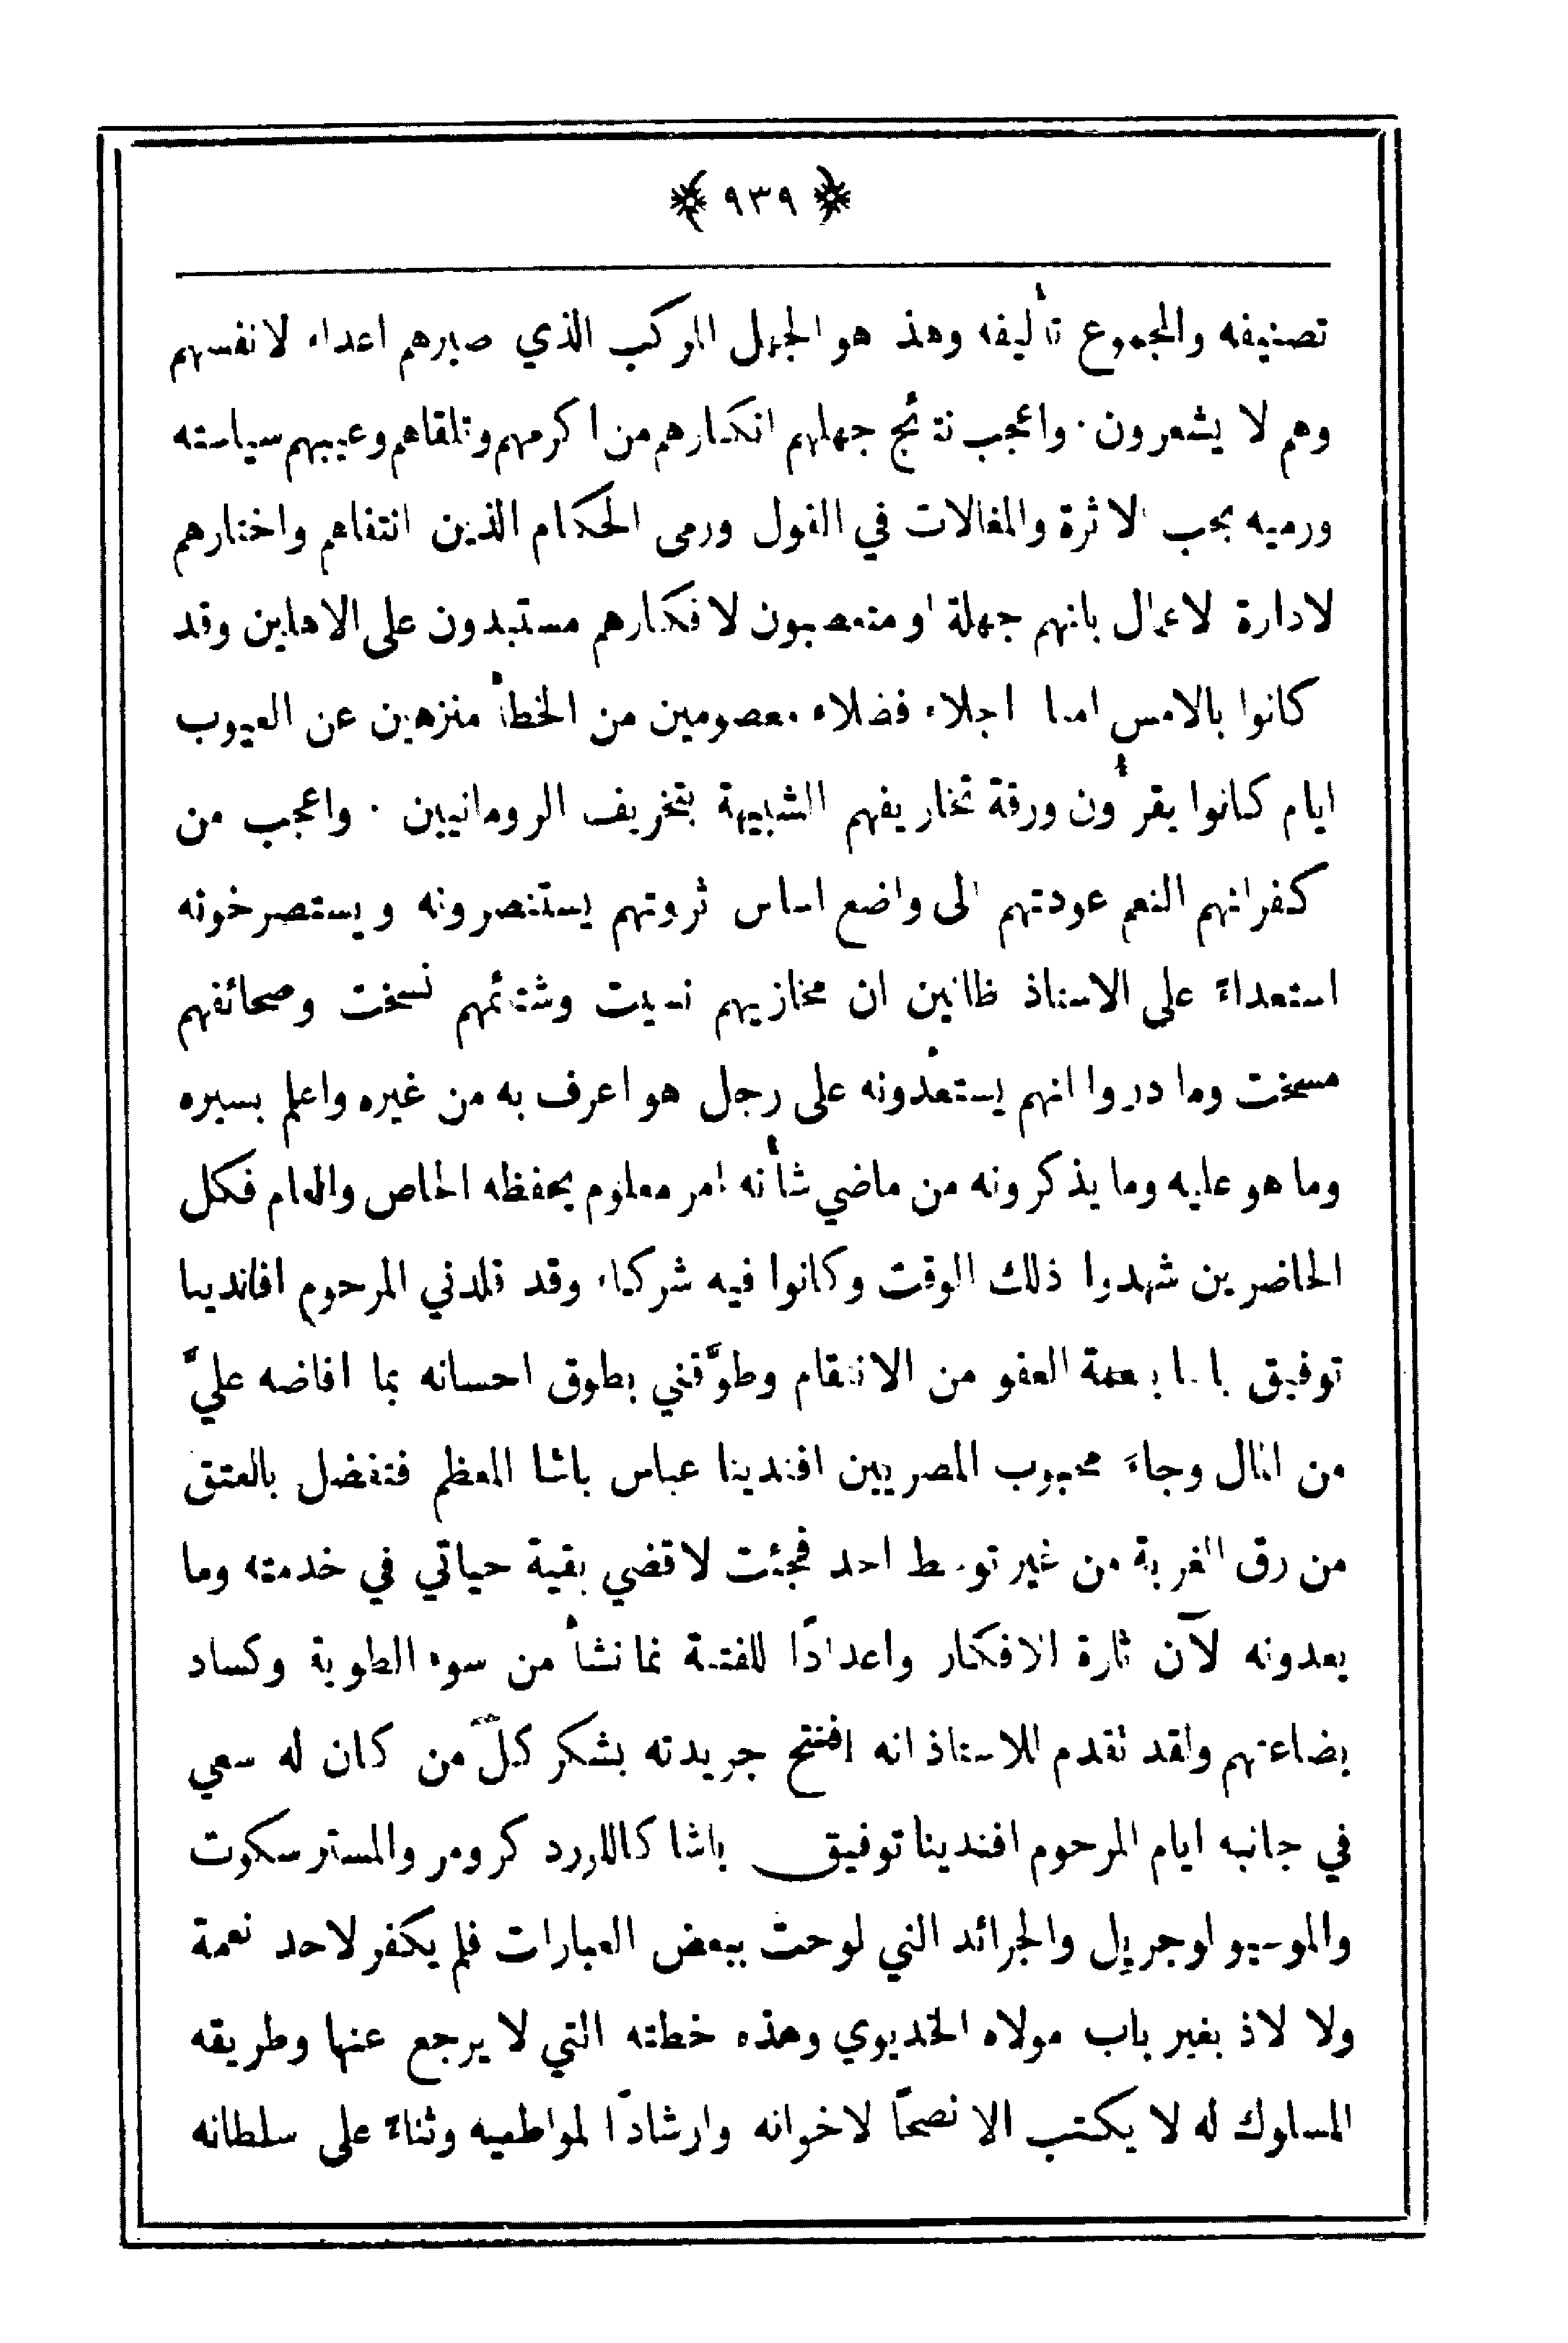 ﴿ ٩٣٩ ﴾
تصنيفه والمجموع تأليفه وهذ هو الجهل المركب الذي صيرهم اعداء لانفسهم
وهم لا يشعرون . واعجب نتائج جهلهم انكارهم من اكرمهم وتلقاهم وعيبهم سياسته
ورميه بحب الاثرة والمغالات في القول ورمى الحكام الذين انتقاهم واختارهم
لادارة الاعمال بانهم جهلة او متعصبون لافكارهم مستبدون على الاهلين وقد
كانوا بالامس امنا اجلاء فضلاء معصومين من الخطأ منزهين عن العيوب
ايام كانوا يقرأون ورقة تخاريفهم الشبيهة بتخريف الرومانيين . واعجب من
كفرانهم النعم عودتهم الى واضع اساس ثروتهم يستنصرونه ويستصرخونه
استعداءً على الاستاذ ظانين ان مخازيهم نسيت وشتائمهم نسخت وصحائفهم
مسخت وما دروا انهم يستعدونه على رجل هو اعرف به من غيره واعلم بسيره
وما هو عليه وما يذكرونه من ماضي شأنه امر معلوم يحفظه الخاص والعام فكل
الحاضرين شهدوا ذلك الوقت وكانوا فيه شركاء وقد قلدني المرحوم افاندينا
توفيق باشا بنعمة العفو من الانتقام وطوَّقني بطوق احسانه بما افاضه عليَّ
من المال وجاءَ محبوب المصريين افندينا عباس باشا المعظم فتفضل بالعتق
من رق الغربة من غير توسط احد فجئت لاقضي بقية حياتي في خدمته وما
يعدونه الآن اثارة الافكار واعدادًا للفتنة نما نشأ من سوء الطوية وكساد
بضاعتهم ولقد تقدم للاستاذ انه افتتح جريدته بشكر كلّ من كان له سعي
في جانبه ايام المرحوم افندينا توفيق باشا كاللورد كرومر والمستر سكوت
والموسيو لوجريل والجرائد التي لوحت ببعض العبارات فلم يكفر لاحد نعمة
ولا لاذ بغير باب مولاه الخديوي وهذه خطته التي لا يرجع عنها وطريقه
المسلوك له لا يكتب الا نصحًا لاخوانه وارشادًا لمواطنيه وثناءً على سلطانه